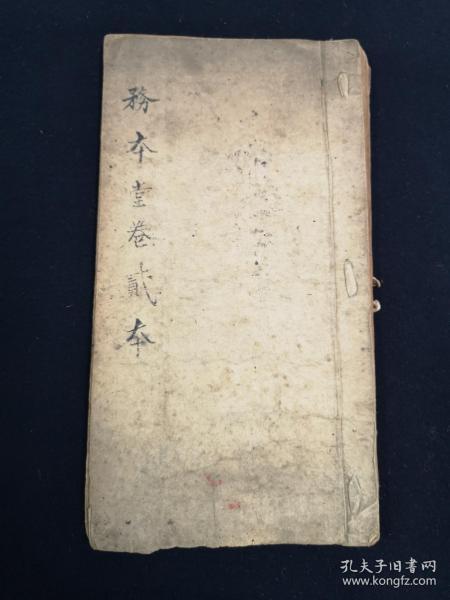 務本堂卷貳本
孔夫子旧书网
www.kongfz.com